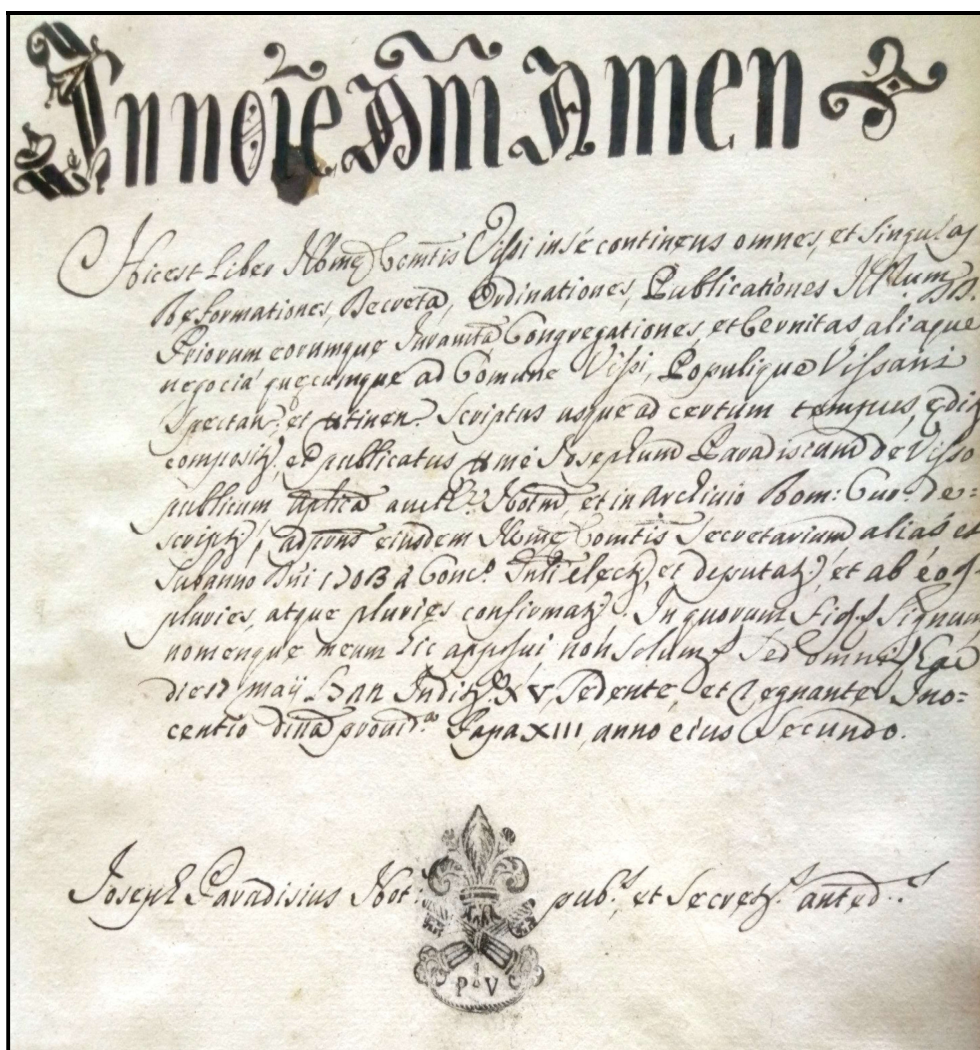 In no͞ie Dn͞i Amen
Hic est Liber Ill͞me Com͞tis Vissi in sé continens omnes, et singulas
Reformationes, Decreta, Ordinationes, Publicationes Ill͞um DD
Priorum eorumque Congregationes, et Cernitas, aliaque
negocia quęcumque ad Comune Vissi, Populique Vissani
spectan: et ptinen: Scriptus usque ad certum tempus, ędit
composit, et publicatus p me Josephum Paradiscum de Visso
publicum Aplica auct Notm, et in Archivio Rom: Cur: de=
script, ad pn͞s eiusdem Ill͞me Com͞tis Secretarium aliàs
sub anno Dn͞i 1703 à Conc.o elect, et deputat, et ab éo
pluries, atque pluries confirmat. In quorum Fid Signum
nomenque meum hic apposui nón solum Sed omni
die 17 maÿ Indit XV, Sedente, et Regnante Ino=
centio dīna provid.a Papa XIII, anno eius Secundo.
Joseph Paradisius Not: pub.s, et Secret.s anted.s
P V C